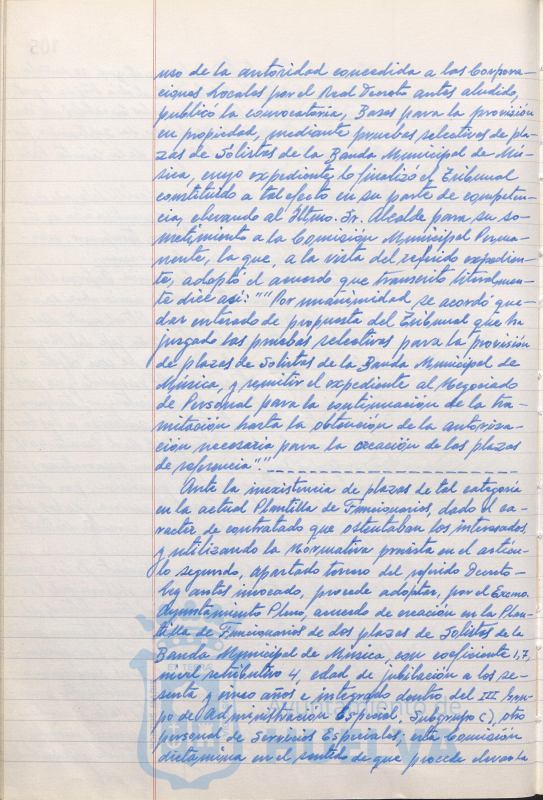 uso de la autoridad concedida a las Corpora-
ciones Locales por el Real Decreto antes aludido,
publicó la convocatoria, Bases para la provisión
en propiedad, mediante pruebas selectivas de pla-
zas de Solistas de la Banda Municipal de Mú-
sica, cuyo expediente, lo finalizó el Tribunal
constituido a tal efecto en su parte de competen-
cia, elevando al Iltmo. Sr. Alcalde para su so-
metimiento a la Comisión Municipal Perma-
nente, la que, a la vista del referido expedien-
te, adoptó el acuerdo que transcrito literalmen-
te dice así: ""Por unanimidad se acordó que-
dar enterado de propuesta del Tribunal que ha
juzgado las pruebas selectivas para la provisión
de plazas de Solistas de la Banda Municipal de
Música, y remitir el expediente al Negociado
de Personal para la continuación de la tra-
mitación hasta la obtención de la autoriza-
ción necesaria para la creación de las plazas
de referencia"."
Ante la inexistencia de plazas de tal categoría
en la actual Plantilla de Funcionarios, dado el ca-
racter de contratado que ostentaban los interesados
y utilizando la normativa prevista en el artícu-
lo segundo, apartado tercero del referido Decreto-
Ley antes invocado, procede adoptar, por el Excmo.
Ayuntamiento Pleno, acuerdo de creación en la Plan-
tilla de Funcionarios de dos plazas de Solistas de la
Banda Municipal de Musica, con coeficiente 1,7,
nivel retributivo 4, edad de jubilación a los se-
senta y cinco años e integrado dentro del III Gru-
po de Administración Especial, Subgrupo C), otro
personal de Servicios Especiales; esta Comisión
dictamina en el sentido de que procede elevar la
Ayuntamiento de
HUELVA